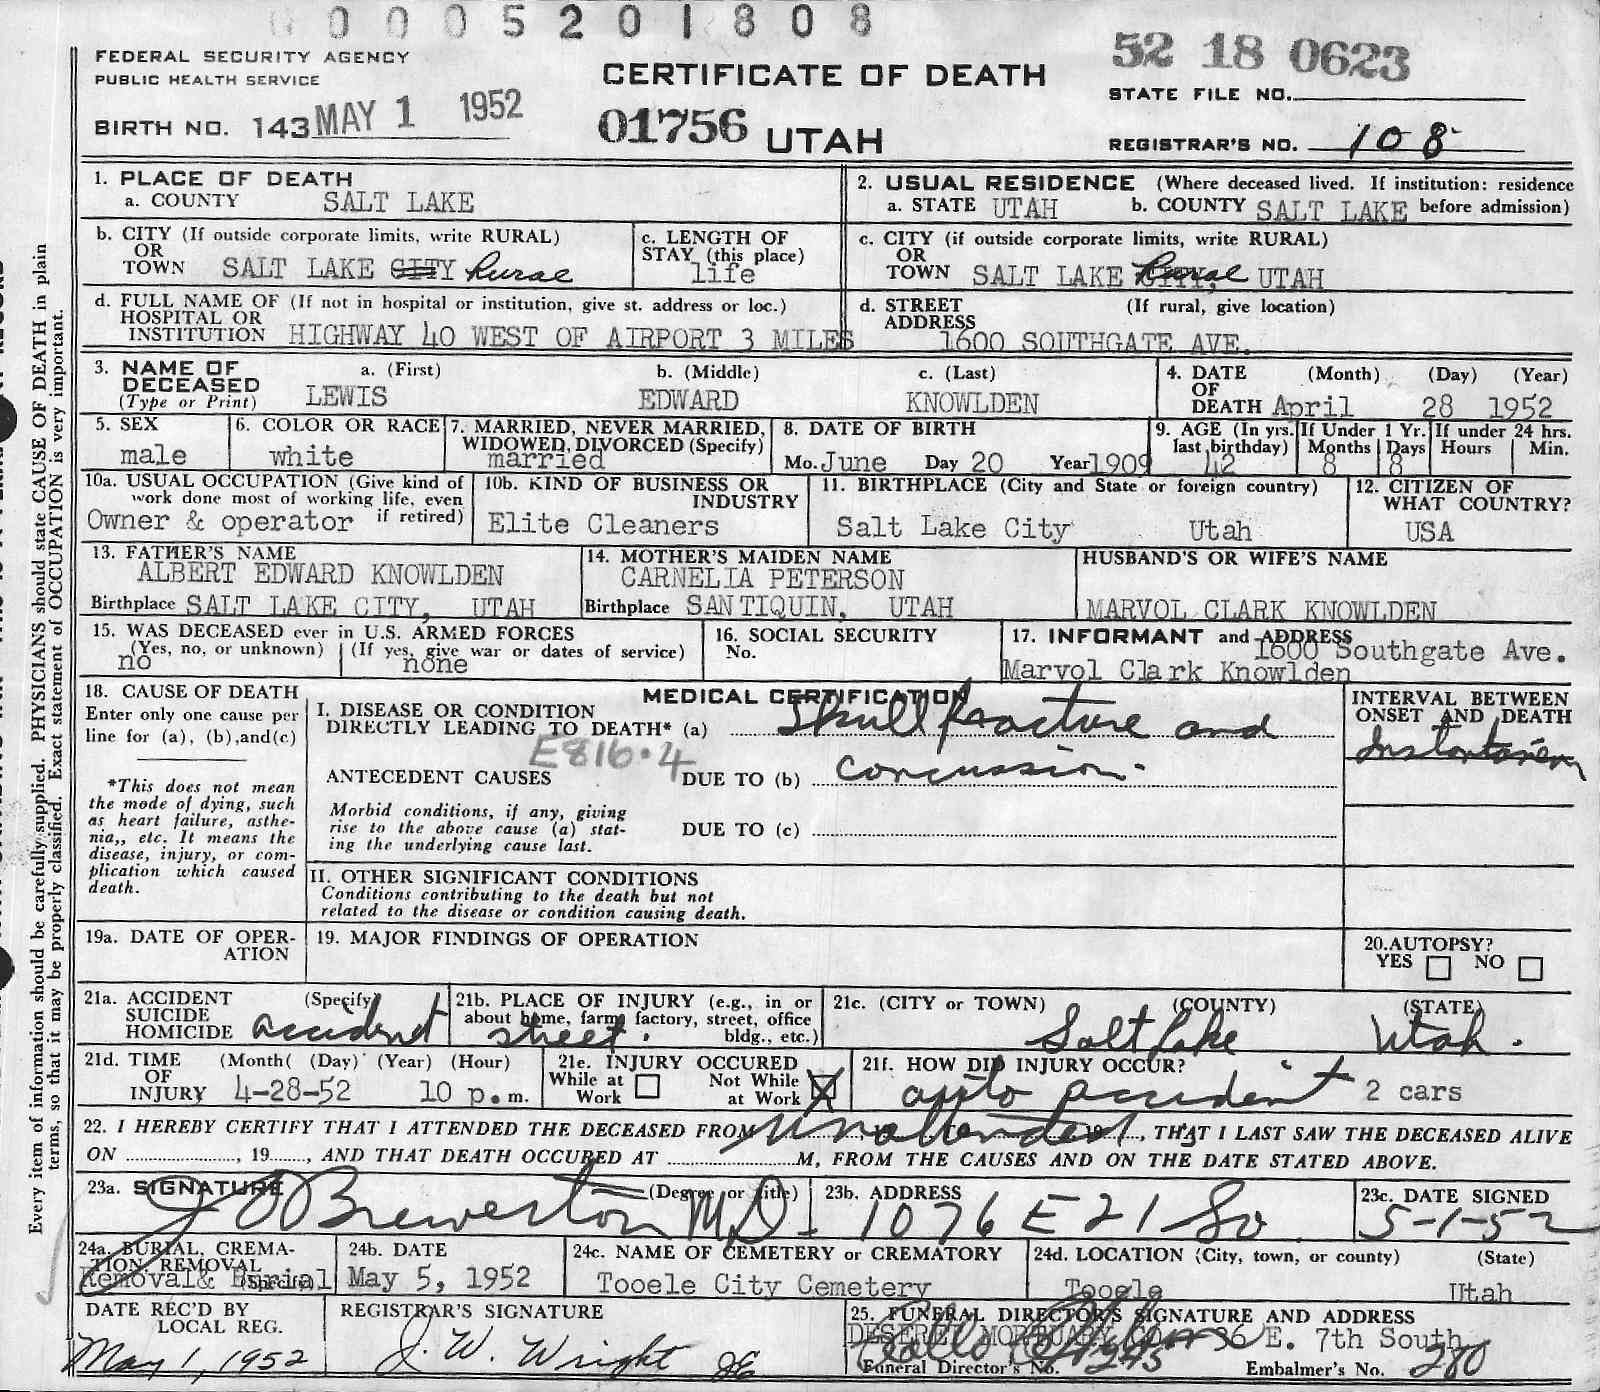 0005201808
FEDERAL SECURITY AGENCY
PUBLIC HEALTH SERVICE
CERTIFICATE OF DEATH
52 18 0623
STATE FILE NO.
BIRTH NO. 143 MAY 1 1952
01756 UTAH
REGISTRAR'S NO. 108
1. PLACE OF DEATH
a. COUNTY SALT LAKE
2. USUAL RESIDENCE (Where deceased lived. If institution: residence before admission)
a. STATE UTAH b. COUNTY SALT LAKE
b. CITY (If outside corporate limits, write RURAL)
OR
TOWN SALT LAKE CITY Rural
c. LENGTH OF
STAY (this place)
life
c. CITY (if outside corporate limits, write RURAL)
OR
TOWN SALT LAKE Rural UTAH
d. FULL NAME OF (If not in hospital or institution, give st. address or loc.)
HOSPITAL OR
INSTITUTION HIGHWAY 40 WEST OF AIRPORT 3 MILES
d. STREET (If rural, give location)
ADDRESS
1600 SOUTHGATE AVE.
3. NAME OF
DECEASED
(Type or Print)
a. (First) b. (Middle) c. (Last)
LEWIS EDWARD KNOWLDEN
4. DATE (Month) (Day) (Year)
OF
DEATH April 28 1952
5. SEX
male
6. COLOR OR RACE
white
7. MARRIED, NEVER MARRIED,
WIDOWED, DIVORCED (Specify)
married
8. DATE OF BIRTH
Mo. June Day 20 Year 1909
9. AGE (In yrs.
last birthday)
42
If Under 1 Yr.
Months Days
8 8
If under 24 hrs.
Hours Min.
10a. USUAL OCCUPATION (Give kind of
work done most of working life, even
if retired)
Owner & operator
10b. KIND OF BUSINESS OR
INDUSTRY
Elite Cleaners
11. BIRTHPLACE (City and State or foreign country)
Salt Lake City Utah
12. CITIZEN OF
WHAT COUNTRY?
USA
13. FATHER'S NAME
ALBERT EDWARD KNOWLDEN
Birthplace SALT LAKE CITY, UTAH
14. MOTHER'S MAIDEN NAME
CARNELIA PETERSON
Birthplace SANTIQUIN, UTAH
HUSBAND'S OR WIFE'S NAME
MARVOL CLARK KNOWLDEN
15. WAS DECEASED ever in U.S. ARMED FORCES
(Yes, no, or unknown) (If yes, give war or dates of service)
no none
16. SOCIAL SECURITY
No.
17. INFORMANT and ADDRESS
1600 Southgate Ave.
Marvol Clark Knowlden
18. CAUSE OF DEATH
Enter only one cause per
line for (a), (b),and(c)
*This does not mean
the mode of dying, such
as heart failure, asthe-
nia,, etc. It means the
disease, injury, or com-
plication which caused
death.
MEDICAL CERTIFICATION
I. DISEASE OR CONDITION
DIRECTLY LEADING TO DEATH* (a) Skull fracture and
E816.4
ANTECEDENT CAUSES DUE TO (b) concussion.
Morbid conditions, if any, giving
rise to the above cause (a) stat-
ing the underlying cause last.
DUE TO (c)
INTERVAL BETWEEN
ONSET AND DEATH
II. OTHER SIGNIFICANT CONDITIONS
Conditions contributing to the death but not
related to the disease or condition causing death.
19a. DATE OF OPER-
ATION
19. MAJOR FINDINGS OF OPERATION
20. AUTOPSY?
YES NO
21a. ACCIDENT (Specify)
SUICIDE
HOMICIDE accident
21b. PLACE OF INJURY (e.g., in or
about home, farm, factory, street, office
bldg., etc.)
street.
21c. (CITY or TOWN) (COUNTY) (STATE)
Salt Lake Utah.
21d. TIME (Month( (Day) (Year) (Hour)
OF
INJURY 4-28-52 10 p.m.
21e. INJURY OCCURED
While at
Work
Not While
at Work X
21f. HOW DID INJURY OCCUR?
auto accident 2 cars
22. I HEREBY CERTIFY THAT I ATTENDED THE DECEASED FROM unattended, 19, THAT I LAST SAW THE DECEASED ALIVE
ON , 19, AND THAT DEATH OCCURED AT M, FROM THE CAUSES AND ON THE DATE STATED ABOVE.
23a. SIGNATURE (Degree or title)
J O Brewerton MD
23b. ADDRESS
1076 E 21 So
23c. DATE SIGNED
5-1-52
24a. BURIAL, CREMA-
TION REMOVAL
(Specify)
Removal & Burial
24b. DATE
May 5, 1952
24c. NAME OF CEMETERY or CREMATORY
Tooele City Cemetery
24d. LOCATION (City, town, or county) (State)
Tooele Utah
DATE REC'D BY
LOCAL REG.
May 1, 1952
REGISTRAR'S SIGNATURE
J. W. Wright
25. FUNERAL DIRECTOR'S SIGNATURE AND ADDRESS
DESERET MORTUARY CO. 36 E. 7th South
Funeral Director's No. 245 Embalmer's No. 280
Every item of information should be carefully supplied. PHYSICIANS should state CAUSE OF DEATH in plain
terms, so that it may be properly classified. Exact statement of OCCUPATION is very important.